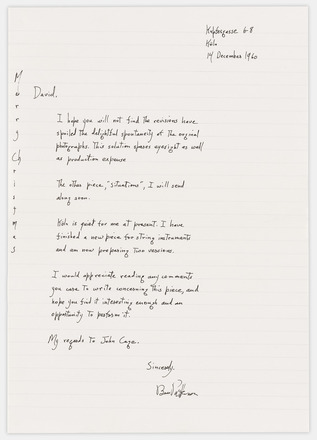 Kupfergasse 6-8
Köln
14 December 1960
Merry Christmas
David,
I hope you will not find the revisions have
spoiled the delightful spontaneity of the original
photographs. This solution spares eyesight as well
as production expense
The other piece, "situations", I will send
along soon.
Köln is quiet for me at present. I have
finished a new piece for string instruments
and am now preparing two versions.
I would appreciate reading any comments
you care to write concerning this piece, and
hope you find it interesting enough and an
opportunity to perform it.
My regards to John Cage.
Sincerely,
Ben Patterson